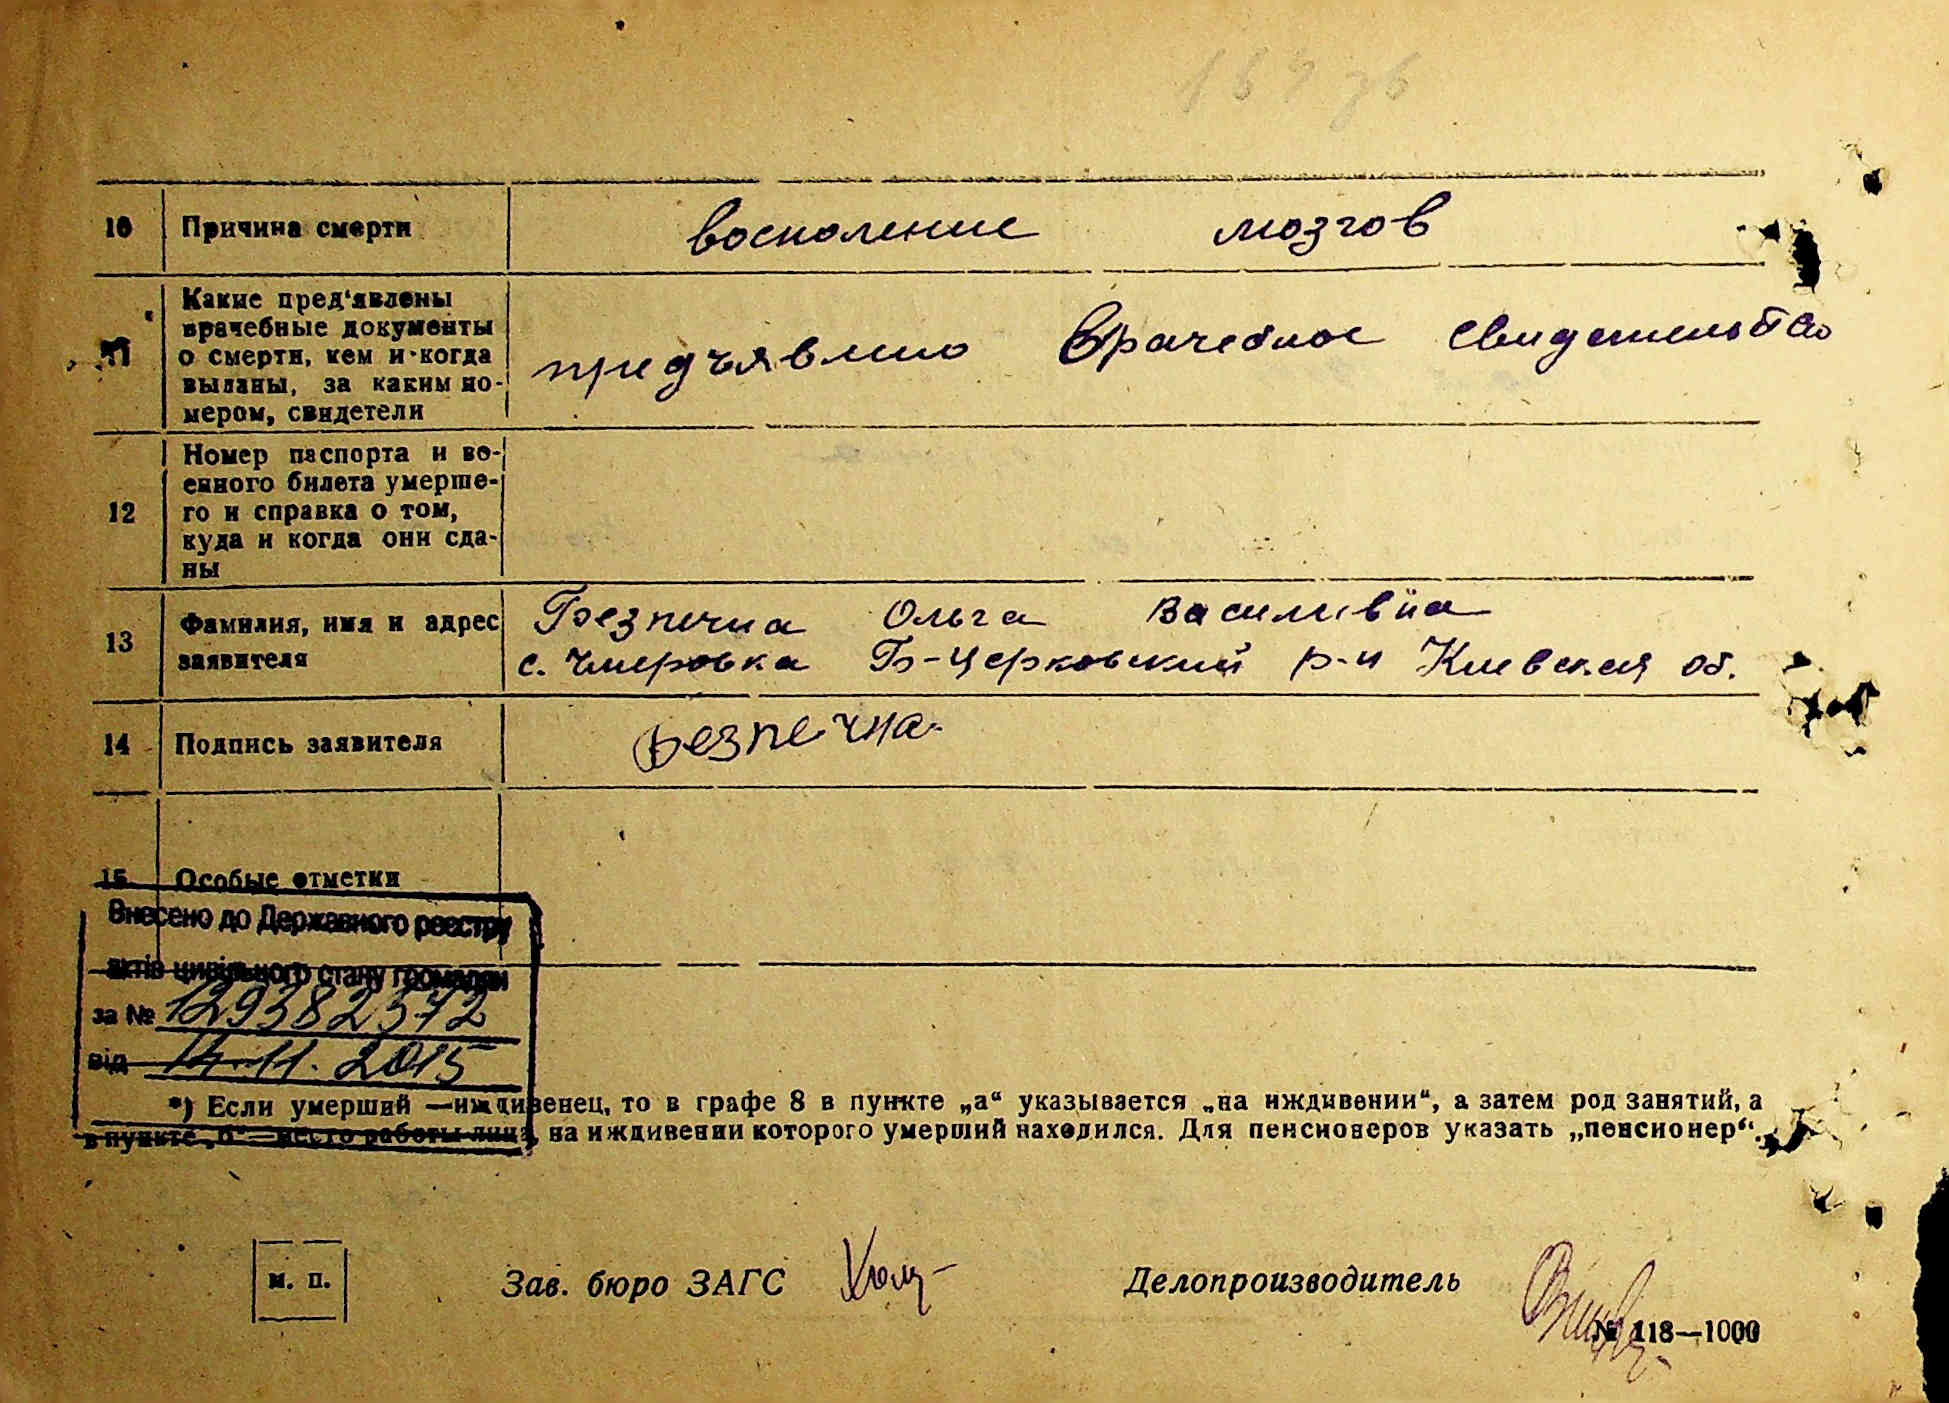 10 Причина смерти восполение мозгов
11 Какие пред'явлены
врачебные документы
о смерти, кем и когда
выданы, за каким но-
мером, свидетели
предъявлено Врачебное свидетельство
12 Номер паспорта и во-
енного билета умерше-
го и справка о том,
куда и когда они сда-
ны
13 Фамилия, имя и адрес
заявителя
Безпечна Ольга Василивна
с. Чмеровка Б-Церковский р-н Киевская об.
14 Подпись заявителя Безпечна
15 Особые отметки
Внесено до Державного реєстру
актів цивільного стану громадян
за № 129382572
від 14.11.2015
*) Если умерший — иждивенец, то в графе 8 в пункте „а“ указывается „на иждивении“, а затем род занятий, а
в пункте „б“ — место работы лица, на иждивении которого умерший находился. Для пенсионеров указать „пенсионер“.
м. п. Зав. бюро ЗАГС Делопроизводитель
№ 118—1000